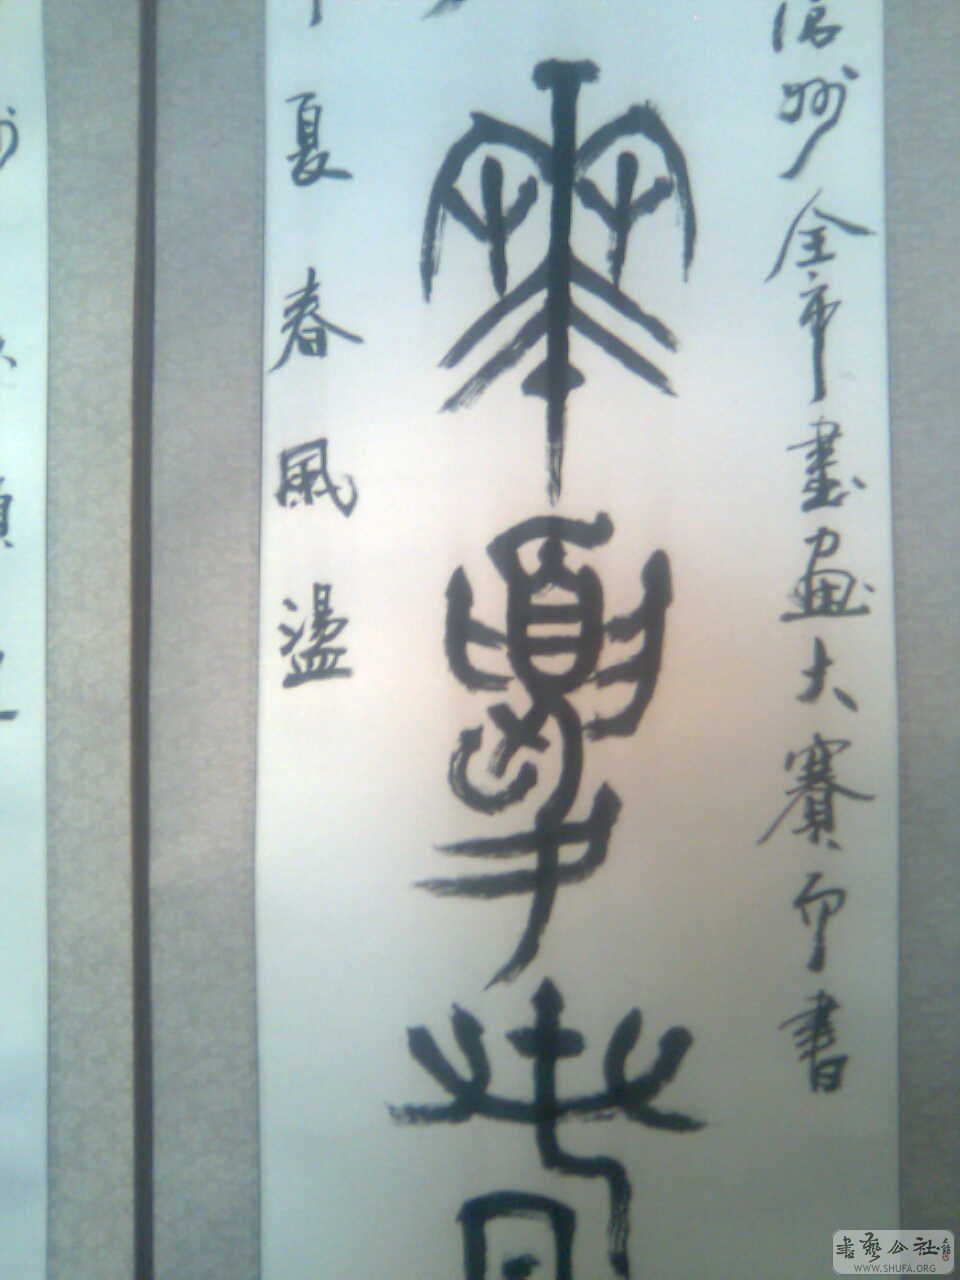 滄州全市書畫大賽印書
華夏春
夏春風盪
書藝公社
WWW.SHUFA.ORG